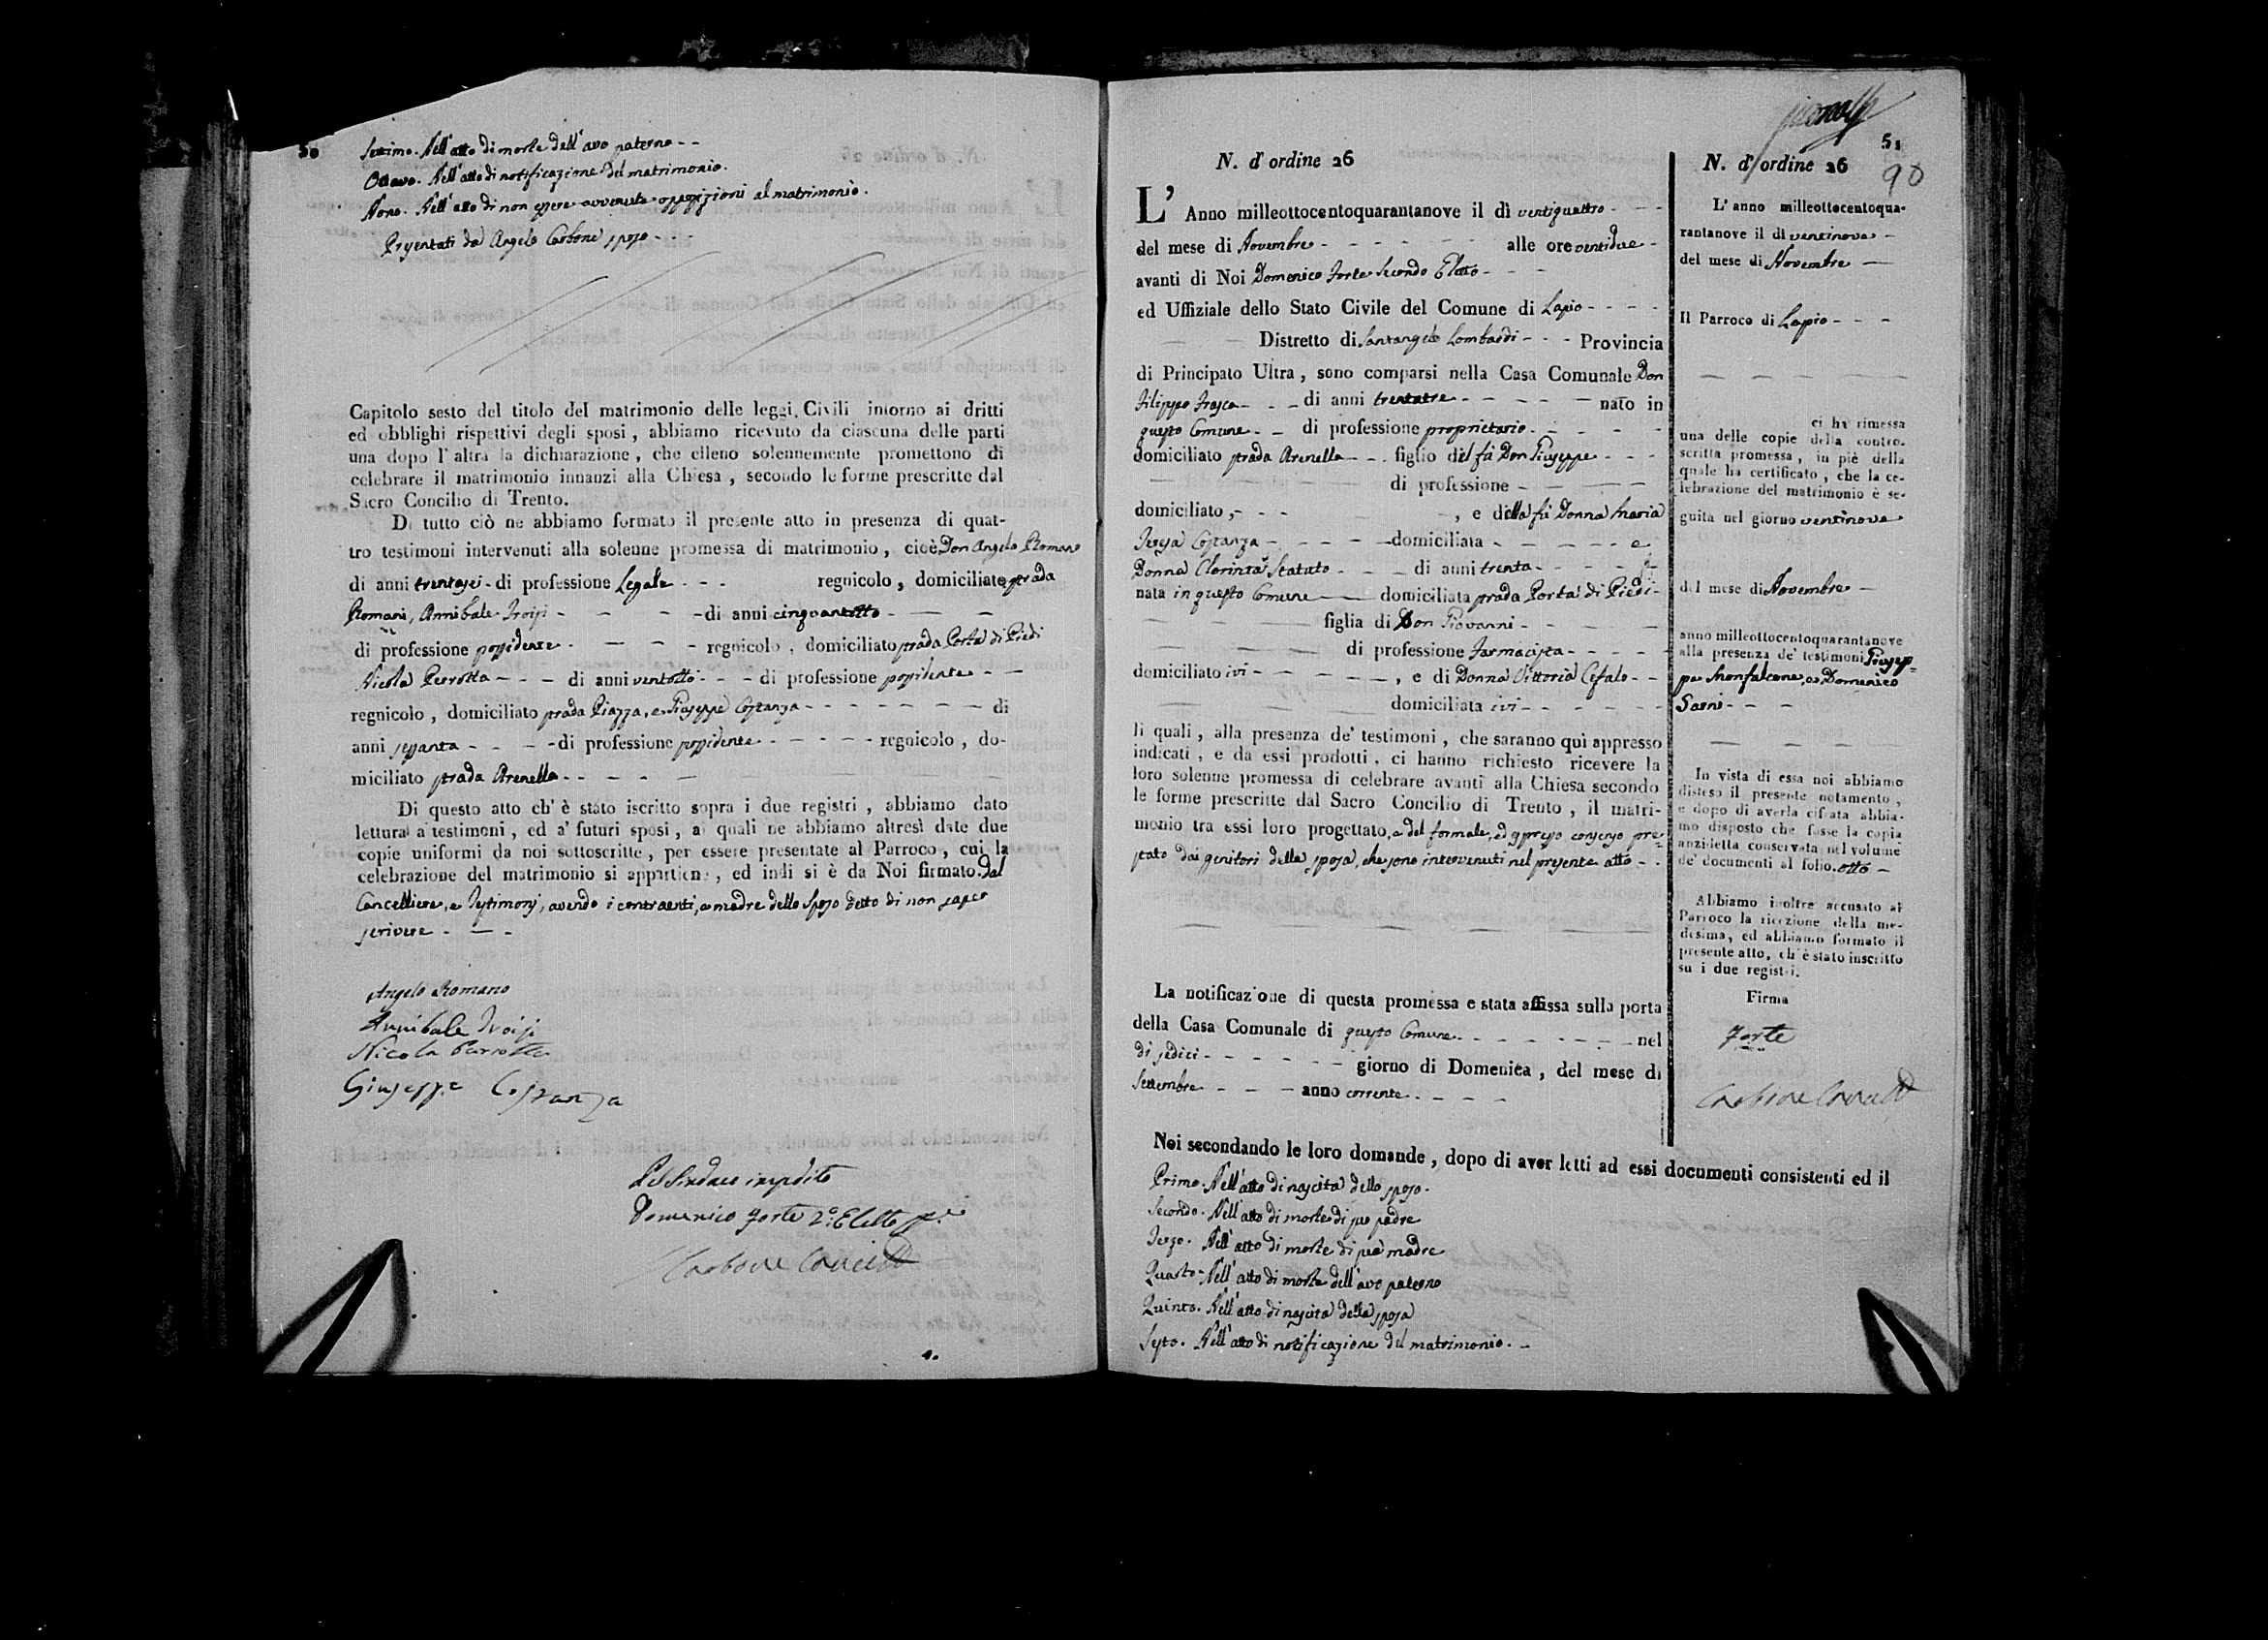 50
Settimo. Nell'atto di morte dell'avo paterno - -
Ottavo. Nell'atto di notificazione del matrimonio.
Nono. Nell'atto di non essere avvenute opposizioni al matrimonio.
Presentati da Angelo Carbone sposo - - -
Capitolo sesto del titolo del matrimonio delle leggi Civili intorno ai dritti
ed obblighi rispettivi degli sposi, abbiamo ricevuto da ciascuna delle parti
una dopo l'altra la dichiarazione, che elleno solennemente promettono di
celebrare il matrimonio innanzi alla Chiesa, secondo le forme prescritte dal
Sacro Concilio di Trento.
Di tutto ciò ne abbiamo formato il presente atto in presenza di quat-
tro testimoni intervenuti alla solenne promessa di matrimonio, cioè Don Angelo Romano
di anni trentasei - di professione Legale - - - regnicolo, domiciliato strada
Romani, Annibale Troisi - - - - di anni cinquantotto - - -
di professione possidente - - - - regnicolo, domiciliato strada Porta di Piedi
Nicola Perrotta - - - di anni ventotto - - - di professione possidente - - -
regnicolo, domiciliato strada Piazza, e Giuseppe Costanza - - - - - - - di
anni sessanta - - - - di professione possidente - - - - - regnicolo, do-
miciliato strada Arenella - - - - -
Di questo atto ch'è stato iscritto sopra i due registri, abbiamo dato
lettura a testimoni, ed a' futuri sposi, ai quali ne abbiamo altresì date due
copie uniformi da noi sottoscritte, per essere presentate al Parroco, cui la
celebrazione del matrimonio si appartiene, ed indi si è da Noi firmato dal
Cancelliere, e Testimonj, avendo i contraenti, e madre dello Sposo detto di non saper
scrivere - - -
Angelo Romano
Annibale Troisi
Nicola Perrotta
Giuseppe Costanza
Pel Sindaco impedito
Domenico Forte 2º Eletto
Carbone
51
90
N. d'ordine 26
L'Anno milleottocentoquarantanove il dì ventiquattro - - -
del mese di Novembre - - - - - - alle ore ventidue -
avanti di Noi Domenico Forte Secondo Eletto - - -
ed Uffiziale dello Stato Civile del Comune di Lapio - - - -
Distretto di Santangelo Lombardi - - - Provincia
di Principato Ultra, sono comparsi nella Casa Comunale Don
Filippo Frasca - - - di anni trentatre - - - - - nato in
questo Comune - - di professione proprietario - - - - -
domiciliato strada Arenella - - - figlio del fu Don Giuseppe - - -
di professione - - - - -
domiciliato, - - - , e della fu Donna Maria
Teresa Costanza - - - - - domiciliata - - - - - e
Donna Clorinta Statuto - - - - di anni trenta - - - -
nata in questo Comune - - domiciliata strada Porta di Piedi -
figlia di Don Giovanni - - - -
di professione Farmacista - - - -
domiciliato ivi - - - - - - , e di Donna Vittoria Cefalo - -
domiciliata ivi - - - - - -
li quali, alla presenza de' testimoni, che saranno quì appresso
indicati, e da essi prodotti, ci hanno richiesto ricevere la
loro solenne promessa di celebrare avanti alla Chiesa secondo
le forme prescritte dal Sacro Concilio di Trento, il matri-
monio tra essi loro progettato, e del formale, ed espresso consenso pre-
stato dai genitori della sposa, che sono intervenuti nel presente atto - -
La notificazione di questa promessa e stata affissa sulla porta
della Casa Comunale di questo Comune - - - - - - - - nel
dì sedici - - - - - - - giorno di Domenica, del mese di
Settembre - - - - anno corrente - - - -
Noi secondando le loro domande, dopo di aver letti ad essi documenti consistenti ed il
Primo. Nell'atto di nascita dello sposo.
Secondo. Nell'atto di morte di suo padre
Terzo. Nell'atto di morte di sua madre
Quarto. Nell'atto di morte dell'avo paterno
Quinto. Nell'atto di nascita della sposa
Sesto. Nell'atto di notificazione del matrimonio. -
N. d'ordine 26
L'anno milleottocentoqua-
rantanove il dì ventinove -
del mese di Novembre -
Il Parroco di Lapio - - -
ci ha rimessa
una delle copie della contro-
scritta promessa, in piè della
quale ha certificato, che la ce-
lebrazione del matrimonio è se-
guita nel giorno ventinove
del mese di Novembre -
anno milleottocentoquarantanove
alla presenza de' testimoni Giusep-
pe Monfalcone, e Domenico
Sarni - - -
In vista di essa noi abbiamo
disteso il presente notamento,
e dopo di averla cifrata abbia-
mo disposto che fosse la copia
anzidetta conservata nel volume
de' documenti al folio otto -
Abbiamo inoltre accusato al
Parroco la ricezione della me-
desima, ed abbiamo formato il
presente atto, ch'è stato inscritto
su i due registri.
Firma
Forte
Carbone